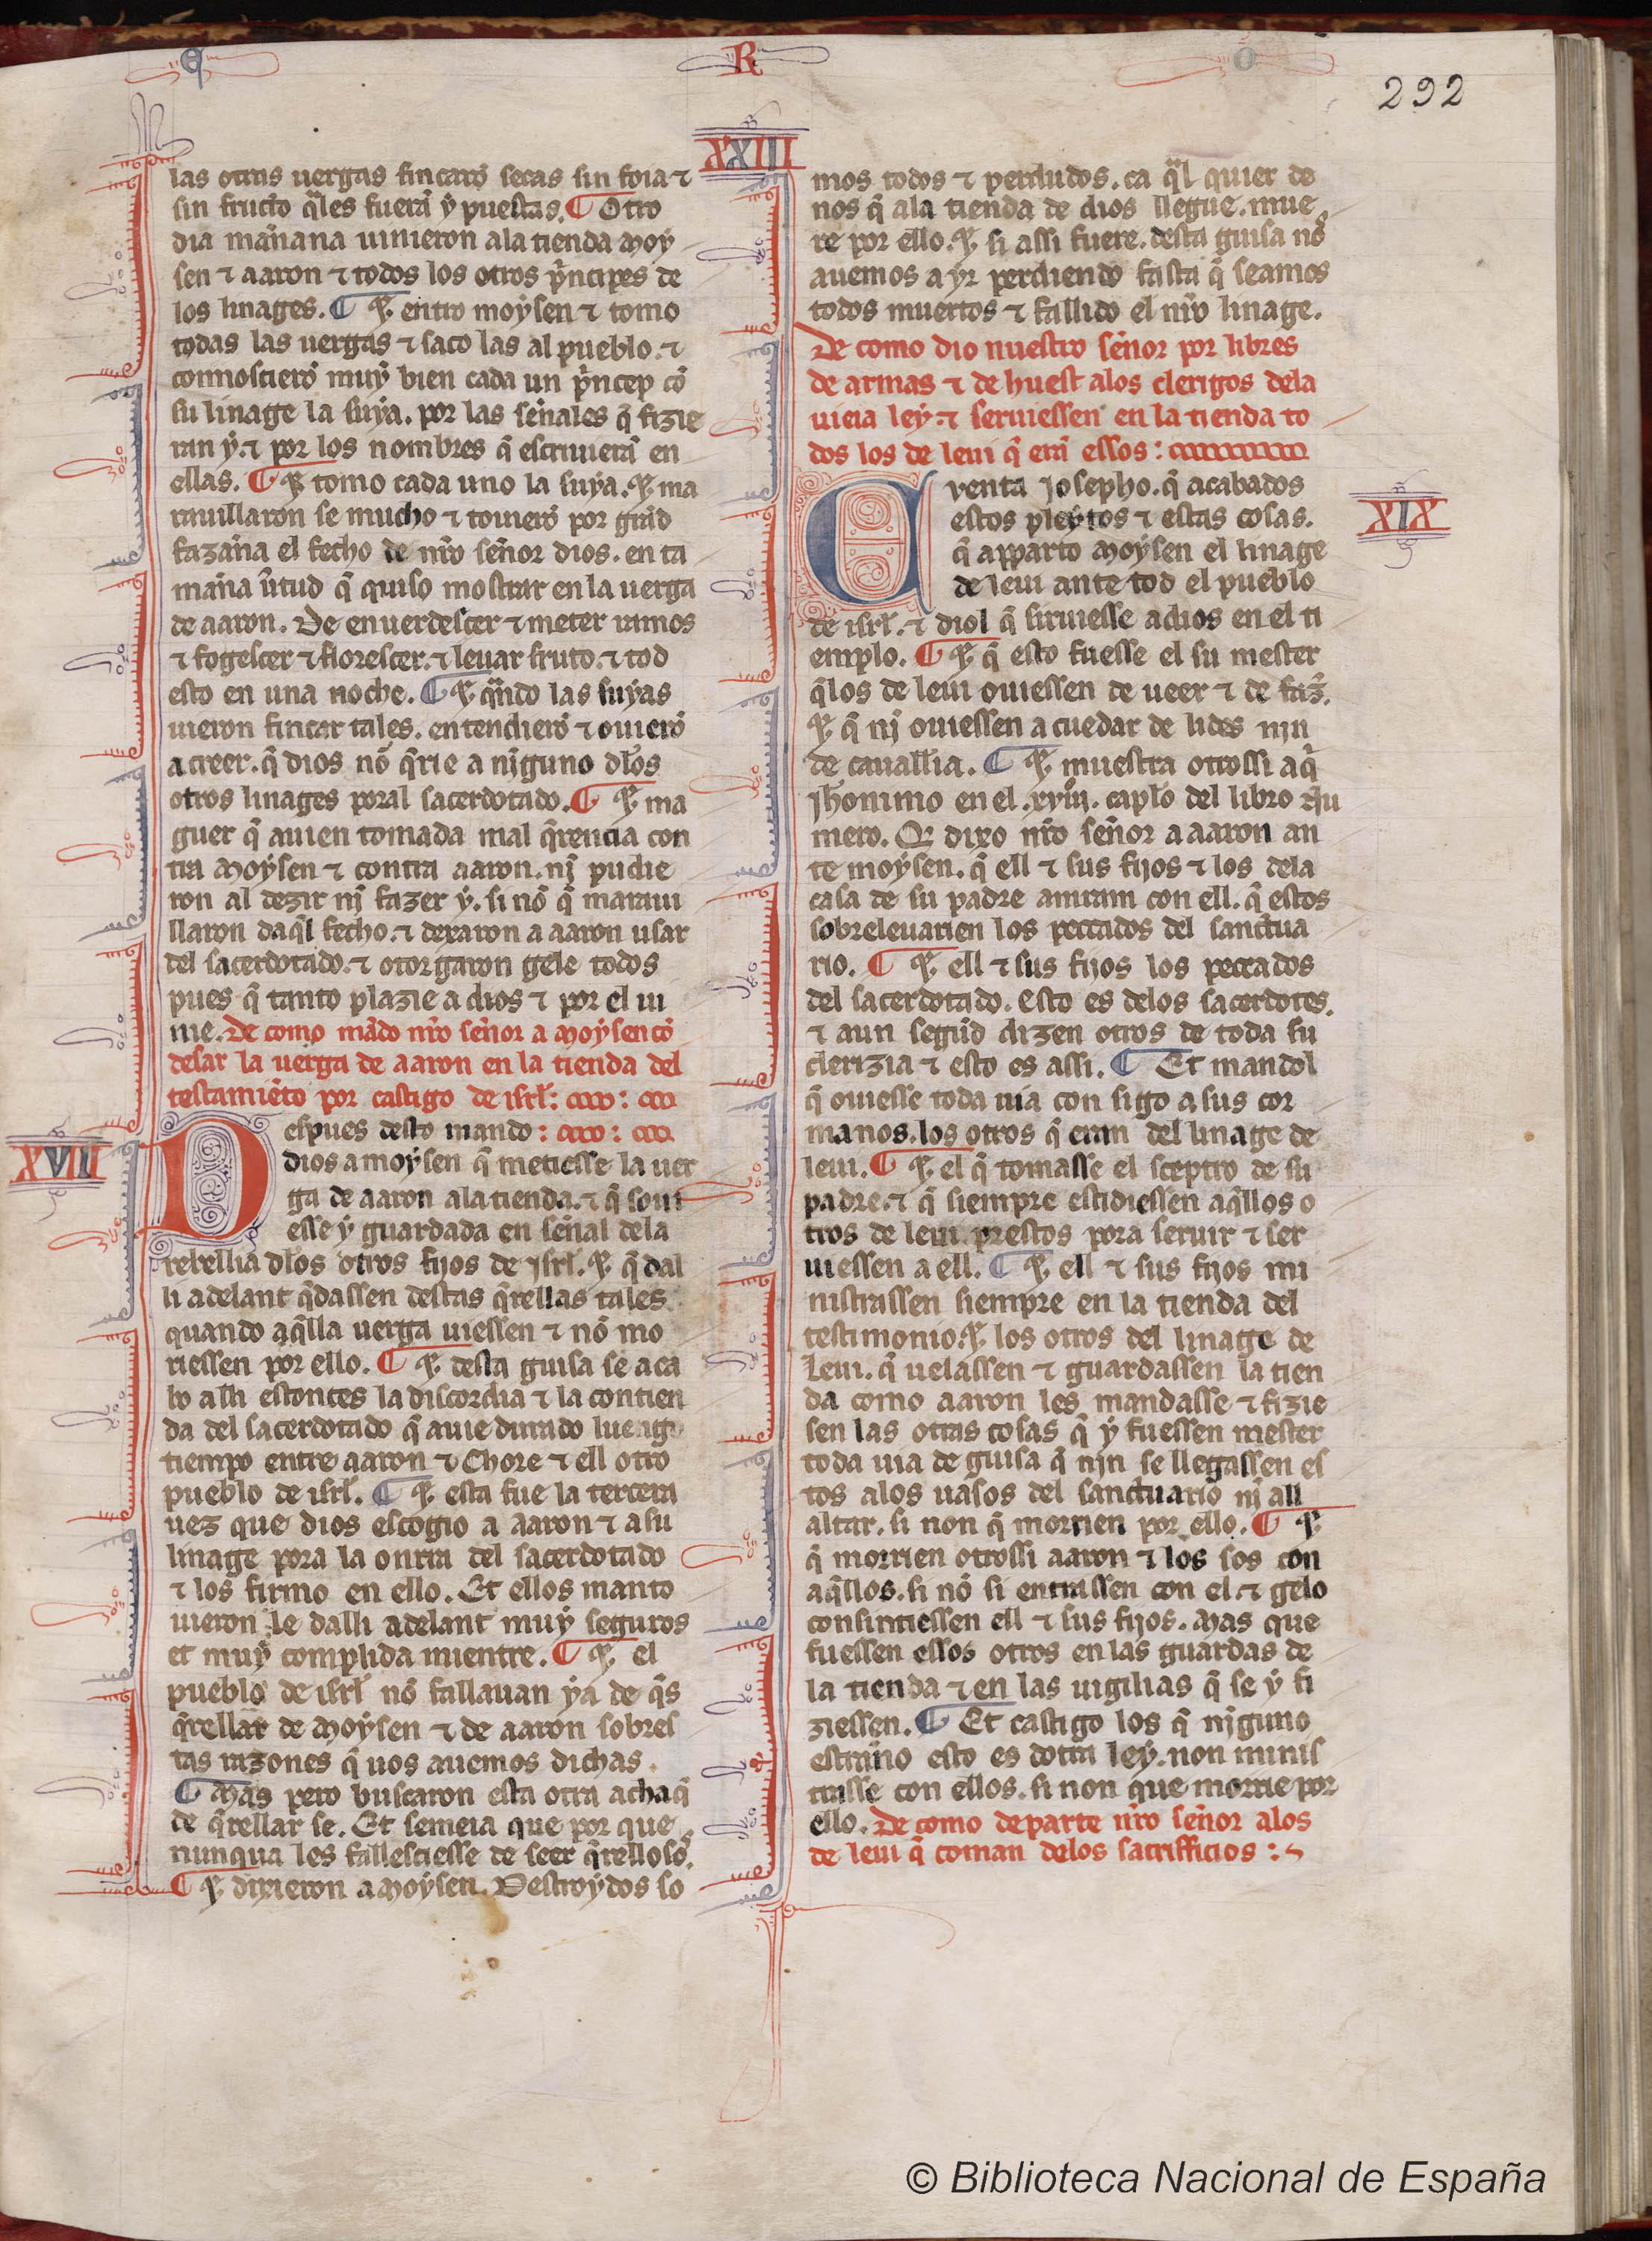 E R O
292
XXIII
las otras uergas fincarõ secas sin foia ⁊
sin fructo q̃les fuerã y puestas. ¶ Otro
dia mañana uinieron ala tienda Moy
sen ⁊ aaron ⁊ todos los otros p̃ncipes de
los linages. ¶ E entro moysen ⁊ tomo
todas las uergas ⁊ saco las al pueblo. ⁊
connoscierõ muy bien cada un p̃ncep cõ
su linage la suya. por las señales q̃ fizie
ran y. ⁊ por los nombres q̃ escriuierã en
ellas. ¶ E tomo cada uno la suya. E ma
rauillaron se mucho ⁊ touierõ por grãd
fazaña el fecho de nr̃o señor dios. en ta
maña ũtud q̃ quiso mostrar en la uerga
de aaron. De enuerdescer ⁊ meter ramos
⁊ fogescer ⁊ florescer. ⁊ leuar fruto. ⁊ tod
esto en una noche. ¶ E q̃ndo las suyas
uieron fincar tales. entendierõ ⁊ ouierõ
a creer. q̃ dios nõ q̃rie a nĩguno dłos
otros linages poral sacerdotado. ¶ E ma
guer q̃ auien tomada mal q̃rencia con
tra Moysen ⁊ contra aaron. nĩ pudie
ron al dezir nĩ fazer y. si nõ q̃ maraui
llaron daq̃l fecho. ⁊ dexaron a aaron usar
del sacerdotado. ⁊ otorgaron gele todos
pues q̃ tanto plazie a dios ⁊ por el ui
nie. De como mãdo nr̃o señor a Moysen cõ
desar la uerga de aaron en la tienda del
testamiẽto por castigo de isrł:
XVIII
Despues desto mando:
dios a moysen q̃ metiesse la uer
ga de aaron ala tienda. ⁊ q̃ soui
esse y guardada en señal dela
rebellia dłos otros fijos de jsrł. E q̃ dal
li adelant q̃dassen destas q̃rellas tales
quando aq̃lla uerga uiessen ⁊ nõ mo
riessen por ello. ¶ E desta guisa se aca
bo alli estonces la discordia ⁊ la contien
da del sacerdotado q̃ auie durado luengo
tiempo entre aaron ⁊ Chore ⁊ ell otro
pueblo de isrł. ¶ E esta fue la tercera
uez que dios escogio a aaron ⁊ a su
linage pora la onrra del sacerdotado
⁊ los firmo en ello. Et ellos manto
uieron le dalli adelant muy seguros
et muy complida mientre. ¶ E el
pueblo de isrł nõ fallauan ya de q̃s
q̃rellar de Moysen ⁊ de aaron sobres
tas razones q̃ uos auemos dichas.
¶ Mas pero buscaron esta otra achaq̃
de q̃rellar se. Et semeia que por que
nunqua les fallesciesse de seer q̃rellosos.
¶ E dixieron a Moysen. Destroydos so
mos todos ⁊ perdudos. ca q̃l quier de
nos q̃ ala tienda de dios llegue. mue
re por ello. E si assi fuere. desta guisa nõ
auemos a yr perdiendo fasta q̃ seamos
todos muertos ⁊ fallido el nr̃o linage.
De como dio nuestro señor por libres
de armas ⁊ de huest alos clerigos dela
uieia ley. ⁊ seruiessen en la tienda to
dos los de leui q̃ erã essos:
XIX
Cuenta Josepho. q̃ acabados
estos pleytos ⁊ estas cosas.
q̃ apparto Moysen el linage
de leui ante tod el pueblo
de isrł. ⁊ diol q̃ siruiesse a dios en el ti
emplo. ¶ E q̃ esto fuesse el su mester
q̃ los de leui ouiessen de ueer ⁊ de faz̃.
E q̃ nĩ ouiessen a cuedar de lides nin
de cauałłia. ¶ E muestra otrossi aq̃
Jheronimo en el .xviij. capło del libro Nu
mero. Q̃ dixo nr̃o señor a aaron an
te moysen. q̃ ell ⁊ sus fijos ⁊ los dela
casa de su padre amram con ell. q̃ estos
sobreleuarien los peccados del sanctua
rio. ¶ E ell ⁊ sus fijos los peccados
del sacerdotado. esto es delos sacerdotes.
⁊ aun segũd dizen otros de toda su
clerizia ⁊ esto es assi. ¶ Et mandol
q̃ ouiesse toda uia con sigo a sus cor
manos. los otros q̃ eran del linage de
leui. ¶ E el q̃ tomasse el sceptro de su
padre. ⁊ q̃ siempre estidiessen aq̃llos o
tros de leui prestos pora seruir ⁊ ser
uiessen a ell. ¶ E ell ⁊ sus fijos mi
nistrassen siempre en la tienda del
testimonio. E los otros del linage de
Leui. q̃ uelassen ⁊ guardassen la tien
da como aaron les mandasse ⁊ fizie
sen las otras cosas q̃ y fuessen mester
toda uia de guisa q̃ nin se llegassen es
tos alos uasos del sanctuario nĩ all
altar. si non q̃ morrien por ello. ¶ E
q̃ morrien otrossi aaron ⁊ los sos con
aq̃llos. si nõ si entrassen con el. ⁊ gelo
consintiessen ell ⁊ sus fijos. Mas que
fuessen essos otros en las guardas de
la tienda ⁊ en las uigilias q̃ se y fi
ziessen. ¶ Et castigo los q̃ nĩguno
estraño esto es dotra ley. non minis
trasse con ellos. si non que morrie por
ello. De como departe nr̃o señor alos
de leui q̃ coman delos sacrifficios:
© Biblioteca Nacional de España